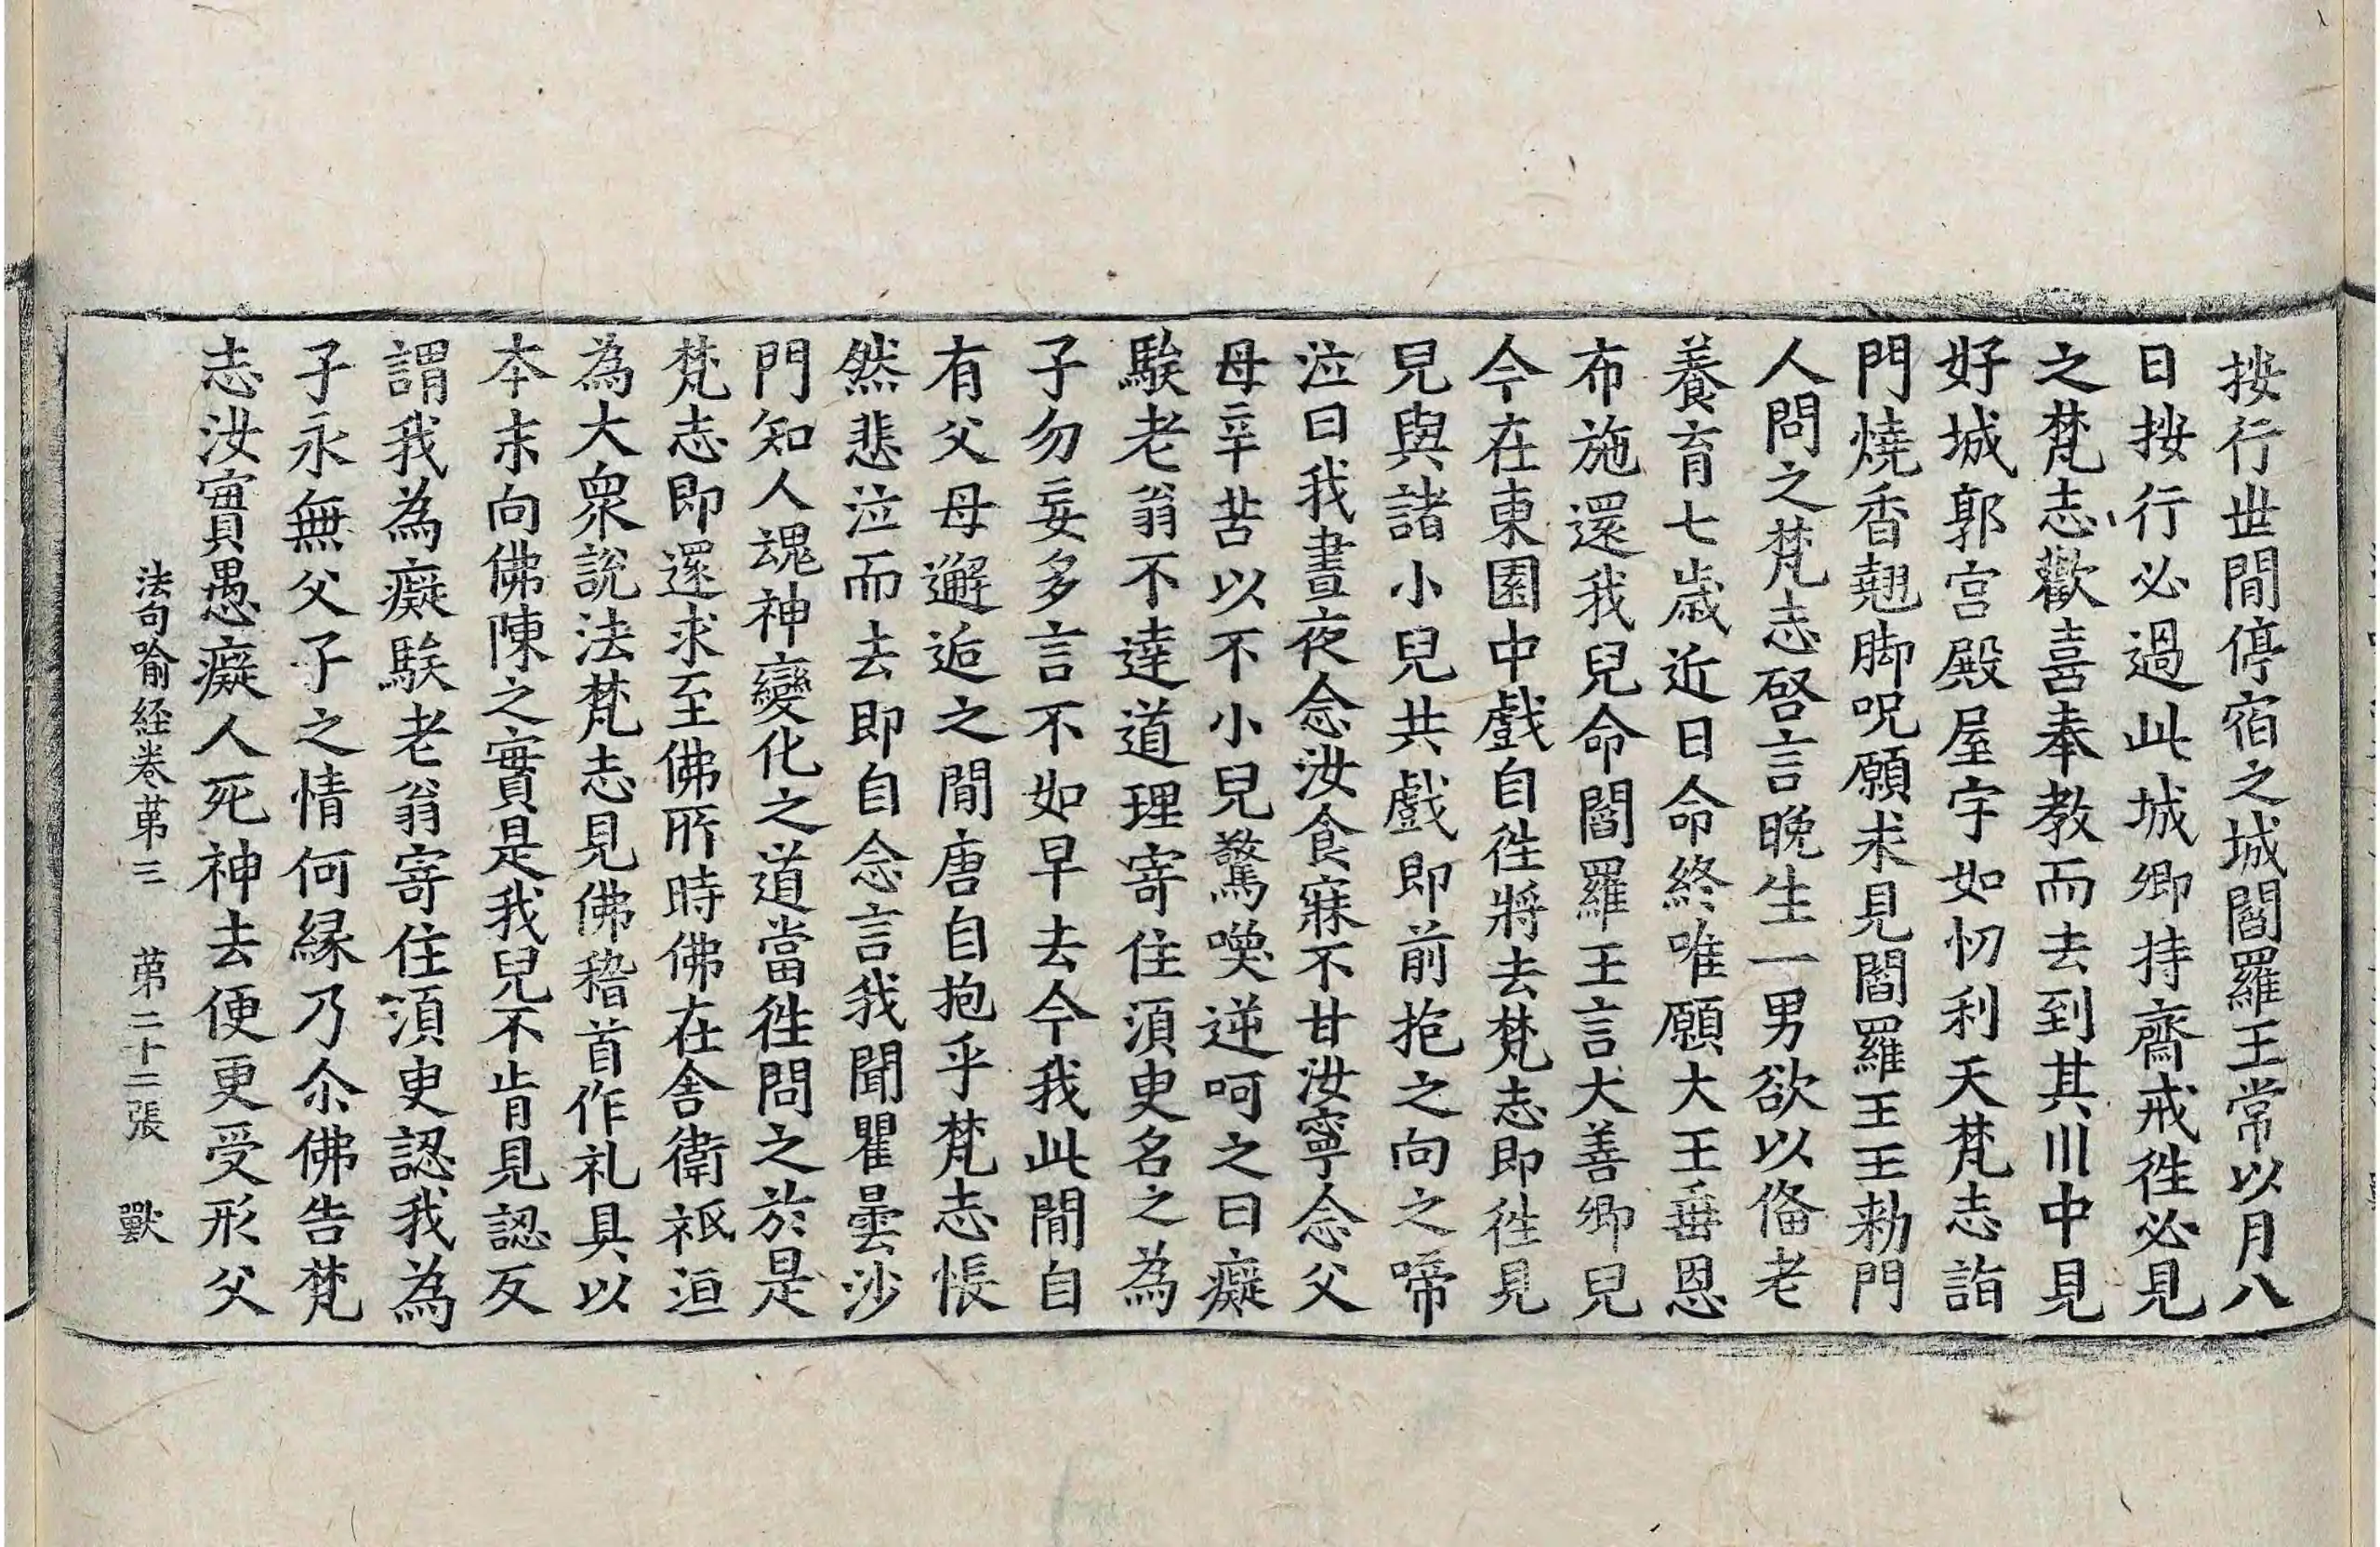 按行世間停宿之城閻羅王常以月八
日按行必過此城卿持齋戒徃必見
之梵志歡喜奉教而去到其川中見
好城郭宮殿屋宇如忉利天梵志詣
門燒香翹脚呪願求見閻羅王王勑門
人問之梵志啓言晚生一男欲以俻老
養育七歲近日命終唯願大王垂恩
布施還我兒命閻羅王言大善卿兒
今在東園中戲自徃將去梵志即徃見
兒與諸小兒共戲即前抱之向之啼
泣曰我晝夜念汝食寐不甘汝寧念父
母辛苦以不小兒驚喚逆呵之曰癡
騃老翁不達道理寄住須臾名之為
子勿妄多言不如早去今我此閒自
有父母邂逅之閒唐自抱乎梵志悵
然悲泣而去即自念言我聞瞿曇沙
門知人魂神變化之道當徃問之於是
梵志即還求至佛所時佛在舍衛祇洹
為大眾說法梵志見佛稽首作礼具以
本末向佛陳之實是我兒不肯見認反
謂我為癡騃老翁寄住須臾認我為
子永無父子之情何緣乃尒佛告梵
志汝實愚癡人死神去便更受形父
法句喻経卷苐三　苐二十二張　獸